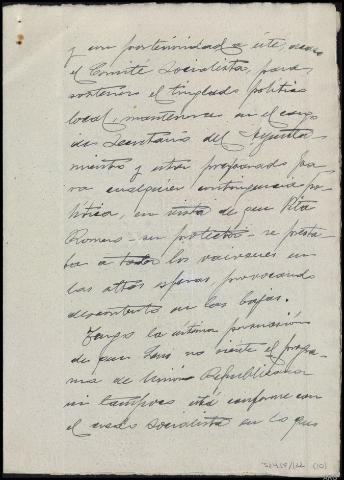 y con posterioridad a éste,
el Comité Socialista, para
sostener el tinglado politico
local, mantenerse en el cargo
de Secretario del Ayunta
miento y estar preparado pa
ra cualquier contingencia po
lítica, en vista de que Pita
Romero - su protector - se presta
ba a todos los vaivenes en
las altas esferas, provocando
descontento en las bajas.
Tengo la íntima persuasión
de que Sans no siente el progra
ma de Unión Republicana
ni tampoco está conforme con
el credo socialista en lo que
(10)